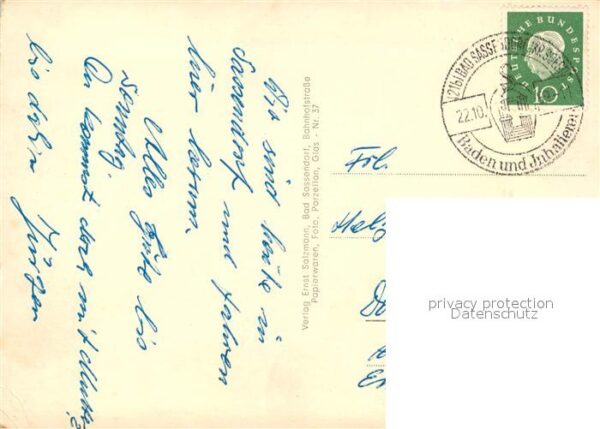 Wir sind heute in
Sassendorf und fahren
hier herum.
Alles Gute bis
Sonntag
Du kommst doch mit Mutter?
bis dahin Jürgen
Verlag Ernst Salzmann, Bad Sassendorf, Bahnhofstraße
Papierwaren, Foto, Porzellan, Glas - Nr. 37
(21b) BAD SASSENDORF
22.10.
Baden und Inhalieren
DEUTSCHE BUNDESPOST
10
Frl.
Helg
privacy protection
Datenschutz